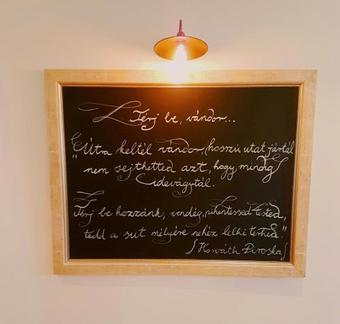 Térj be, vándor...
"Útra keltél vándor, hosszú utat jártál
nem sejthetted azt, hogy mindig
idevágytál.
Térj be hozzánk, vendég, pihentesd tested,
tedd a sut mélyére nehéz lelki terhed"
/Horváth Piroska/